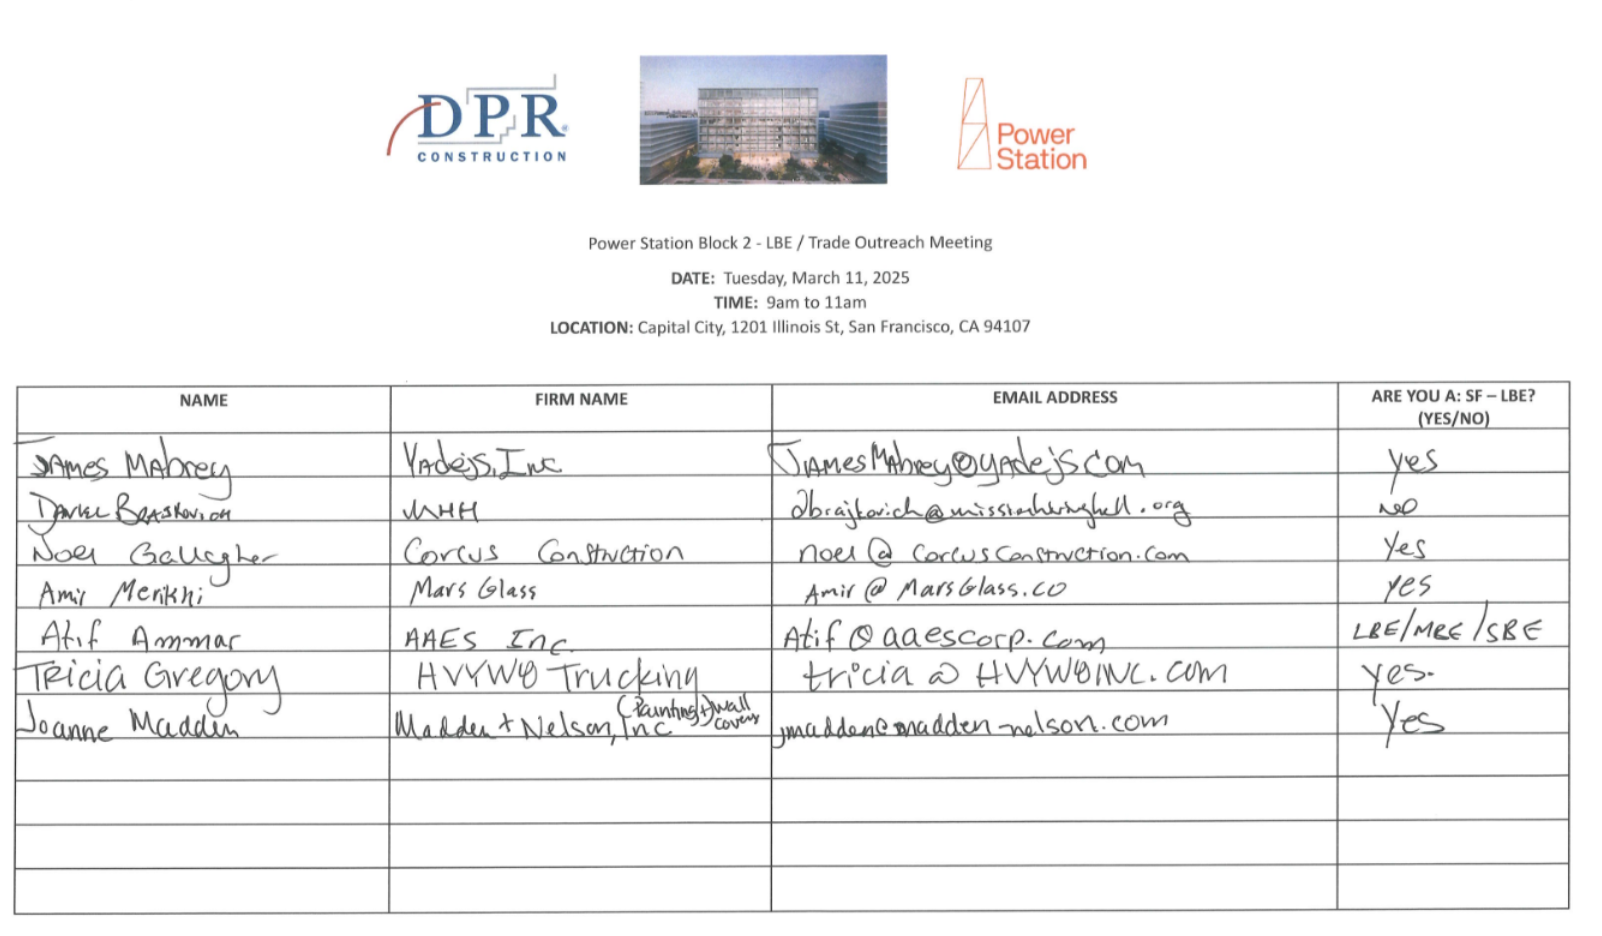 DPR
CONSTRUCTION
Power
Station
Power Station Block 2 - LBE / Trade Outreach Meeting
DATE: Tuesday, March 11, 2025
TIME: 9am to 11am
LOCATION: Capital City, 1201 Illinois St, San Francisco, CA 94107
NAME FIRM NAME EMAIL ADDRESS ARE YOU A: SF – LBE?
(YES/NO)
James Mabrey Yadejs, Inc JamesMabrey@yadejs.com yes
Daniel Brajkovich MHH dbrajkovich@missionhiringhall.org no
Noel Gallagher Corcus Construction noel@corcusconstruction.com Yes
Amir Merikhi Mars Glass Amir@MarsGlass.co yes
Atif Ammar AAES Inc. Atif@aaescorp.com LBE/MBE/SBE
Tricia Gregory HVYW8 Trucking tricia@HVYW8INC.com yes.
Joanne Madden Madden + Nelson, Inc (Painting + wall covers) jmadden@madden-nelson.com Yes